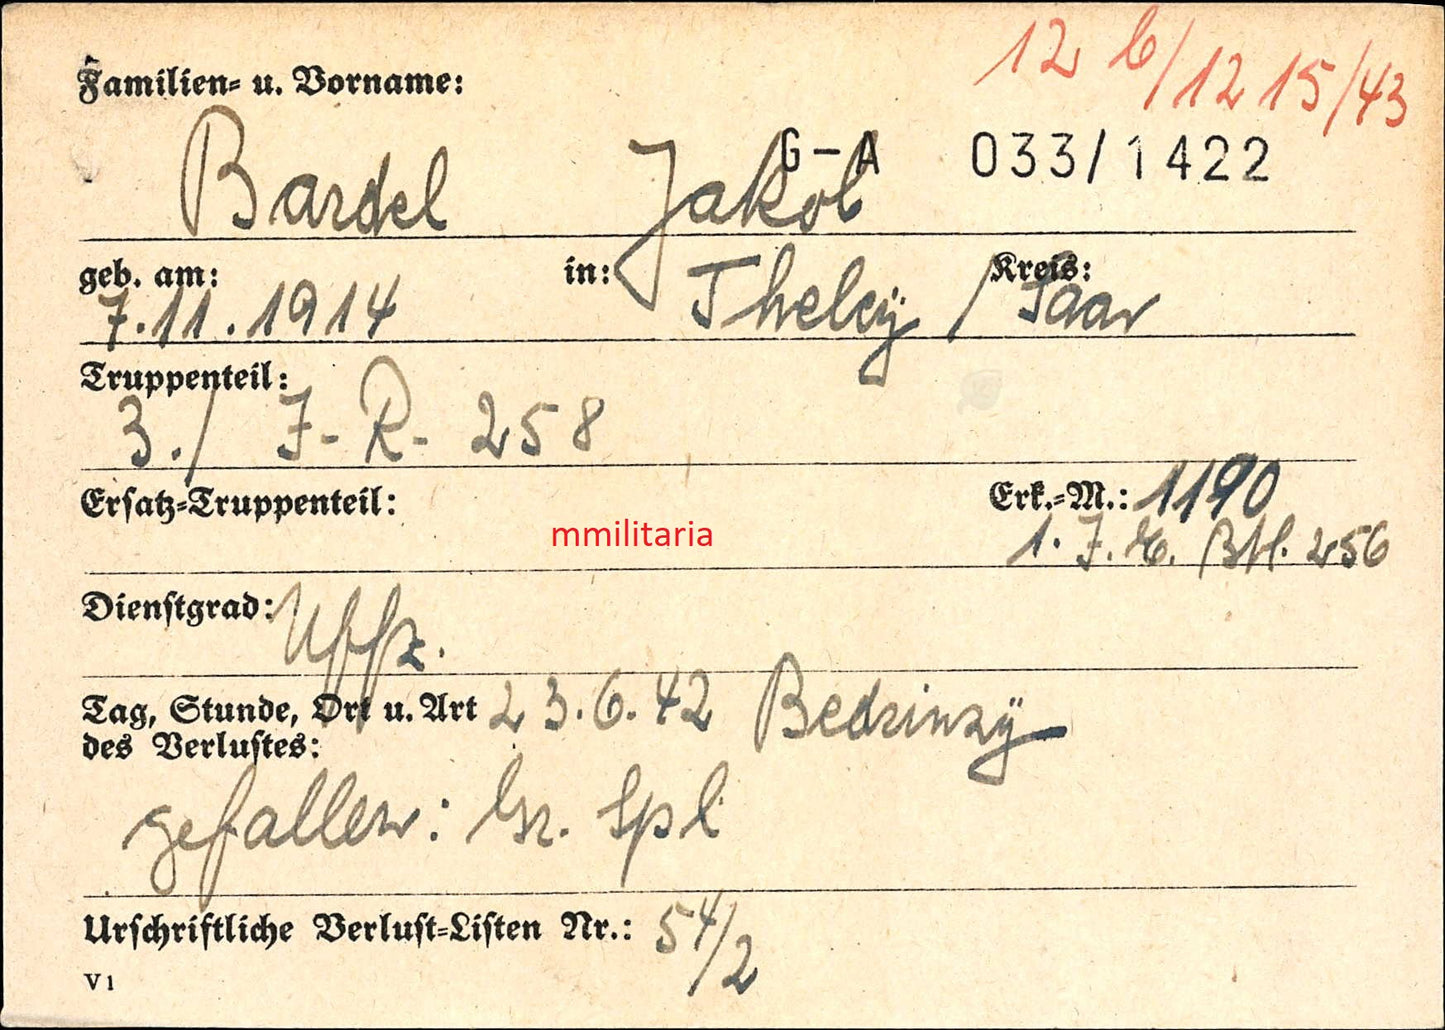 12 b/12 15/43
Familien- u. Vorname:
G-A 033/1422
Bardel Jakob
geb. am: in: Kreis:
7.11.1914 Theley / Saar
Truppenteil:
3./ J-R- 258
Ersatz-Truppenteil: Erk.-M.: 1190
mmilitaria
1. J. E. Btl. 256
Dienstgrad: Uffz.
Tag, Stunde, Ort u. Art 23.6.42 Bedrinzy
des Verlustes:
gefallen: Gr. Spl
Urschriftliche Verlust-Listen Nr.: 54/2
V1